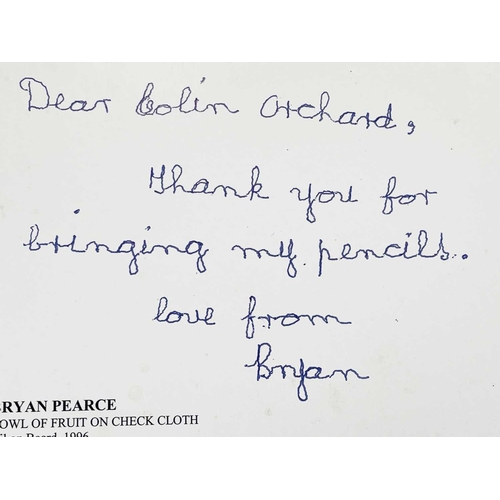 Dear Colin Orchard,
Thank you for
bringing my pencils.
love from
Bryan
BRYAN PEARCE
BOWL OF FRUIT ON CHECK CLOTH
Oil on Board, 1996